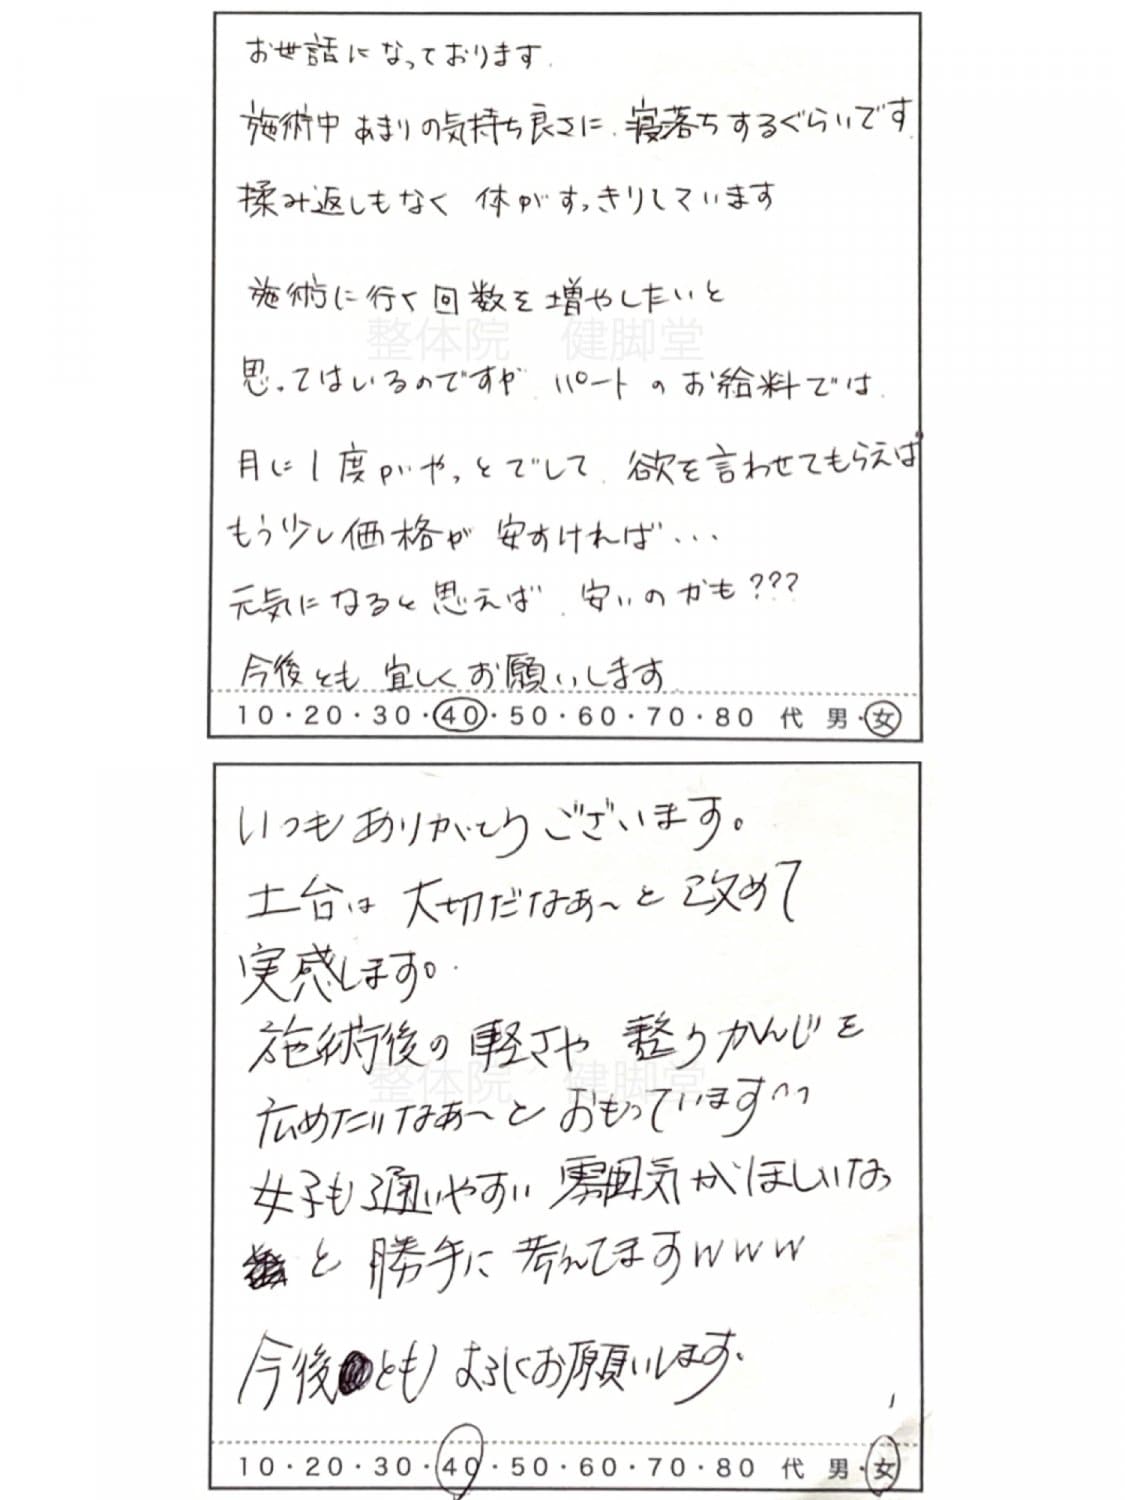 お世話になっております.
施術中 あまりの気持ち良さに、寝落ちするぐらいです
揉み返しもなく 体がすっきりしています
施術に行く回数を増やしたいと
整体院 健脚堂
思ってはいるのですが パートのお給料では
月に1度がやっとでして 欲を言わせてもらえば
もう少し価格が 安すければ・・・
元気になると思えば 安いのかも???
今後とも 宜しくお願いします
10・20・30・40・50・60・70・80 代 男・女
いつもありがとうございます。
土台は 大切だなぁ〜と 改めて
実感します。
施術後の軽さや 整うかんじを
整体院 健脚堂
広めたいなぁ〜と おもっています^^
女子も通いやすい 雰囲気がほしいなっ
と 勝手に考えてますwww
今後とも よろしくお願いします.
10・20・30・40・50・60・70・80 代 男・女